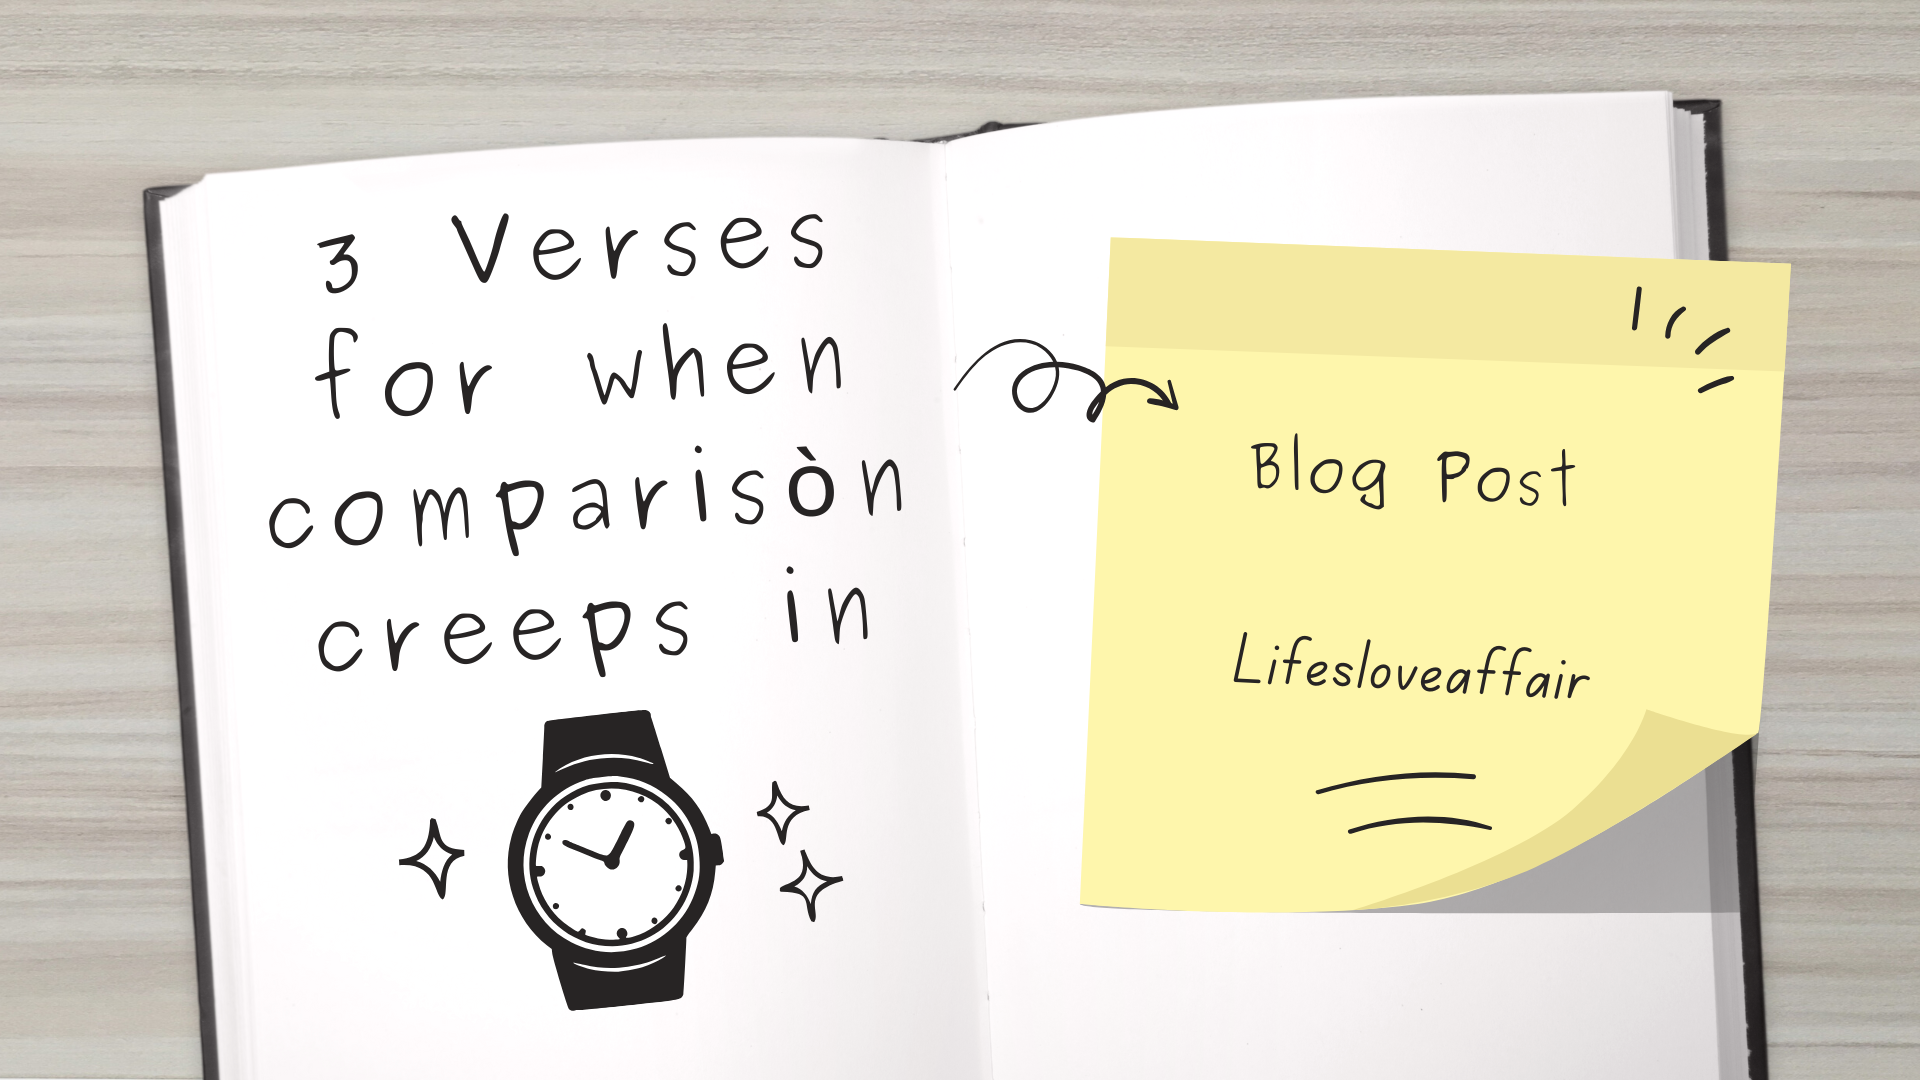 3 Verses
for when
comparisòn
creeps in
Blog Post
Lifesloveaffair